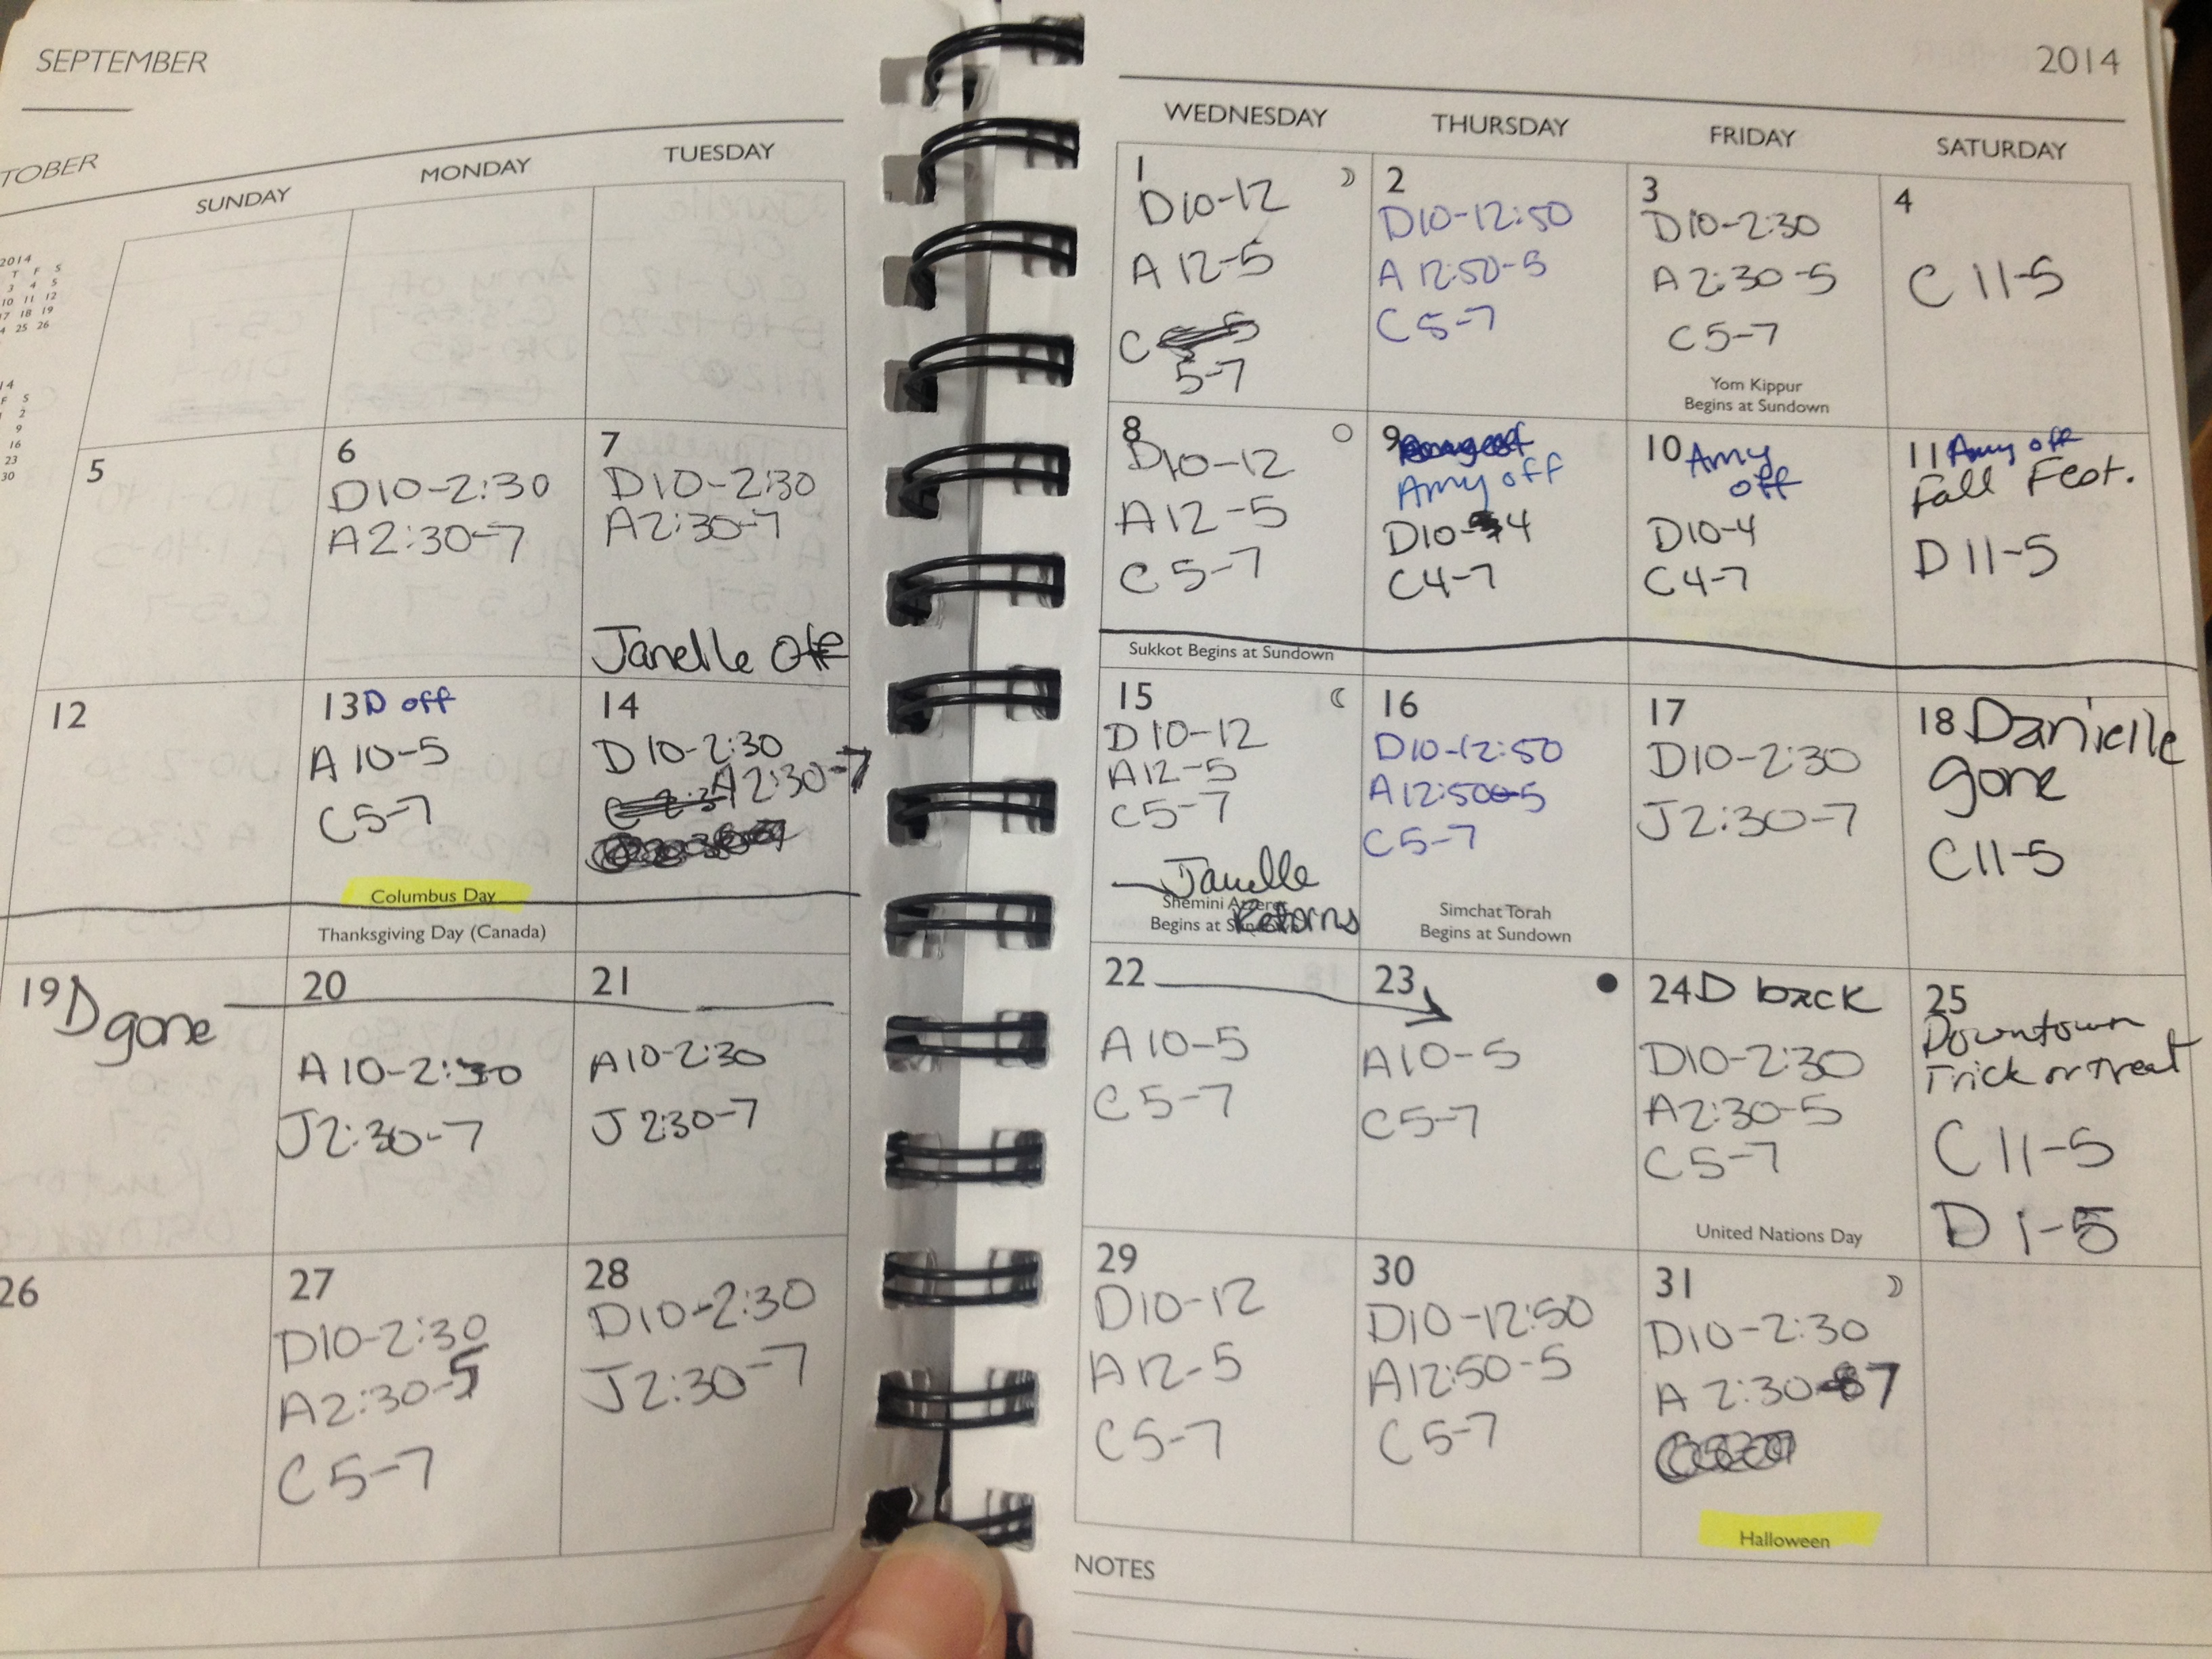 SEPTEMBER
2014
TOBER
SUNDAY
MONDAY
TUESDAY
WEDNESDAY
THURSDAY
FRIDAY
SATURDAY
2014
T F S
3 4 5
10 11 12
17 18 19
4 25 26
14
F S
1 2
9
16
23
30
1
D10-12
A 12-5
C
5-7
2
D10-12:50
A 12:50-5
C 5-7
3
D10-2:30
A 2:30-5
C5-7
Yom Kippur
Begins at Sundown
4
C 11-5
5
6
D10-2:30
A2:30-7
7
D10-2:30
A2:30-7
Janelle Off
8
D10-12
A12-5
C 5-7
Sukkot Begins at Sundown
9
Amy off
D10-4
C4-7
10 Amy
off
D10-4
C4-7
11 Amy off
Fall Fest.
D 11-5
12
13 D off
A 10-5
C5-7
Columbus Day
Thanksgiving Day (Canada)
14
D 10-2:30
A2:30-7
15
D 10-12
A12-5
C5-7
Janelle
Returns
Shemini
Begins at
16
D10-12:50
A12:50-5
C5-7
Simchat Torah
Begins at Sundown
17
D10-2:30
J2:30-7
18 Danielle
gone
C11-5
19 D
gone
20
A 10-2:30
J2:30-7
21
A10-2:30
J 2:30-7
22
A 10-5
C 5-7
23
A10-5
C5-7
24 D back
D10-2:30
A2:30-5
C5-7
United Nations Day
25
Downtown
Trick or Treat
C 11-5
D 1-5
26
27
D10-2:30
A2:30-5
C 5-7
28
D10-2:30
J2:30-7
29
D10-12
A12-5
C5-7
30
D10-12:50
A12:50-5
C 5-7
31
D10-2:30
A 2:30-7
Halloween
NOTES